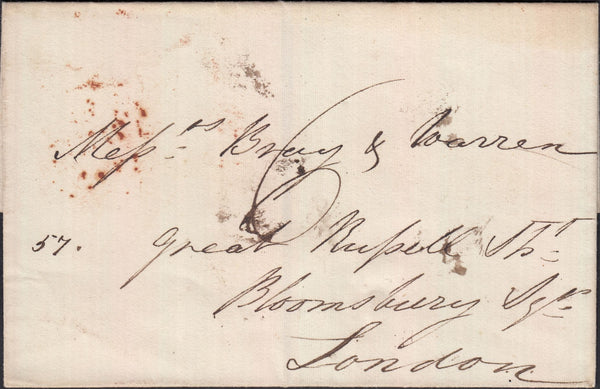 Messrs Bray & Warren
6
57. Great Russell St
Bloomsbury Sqre
London